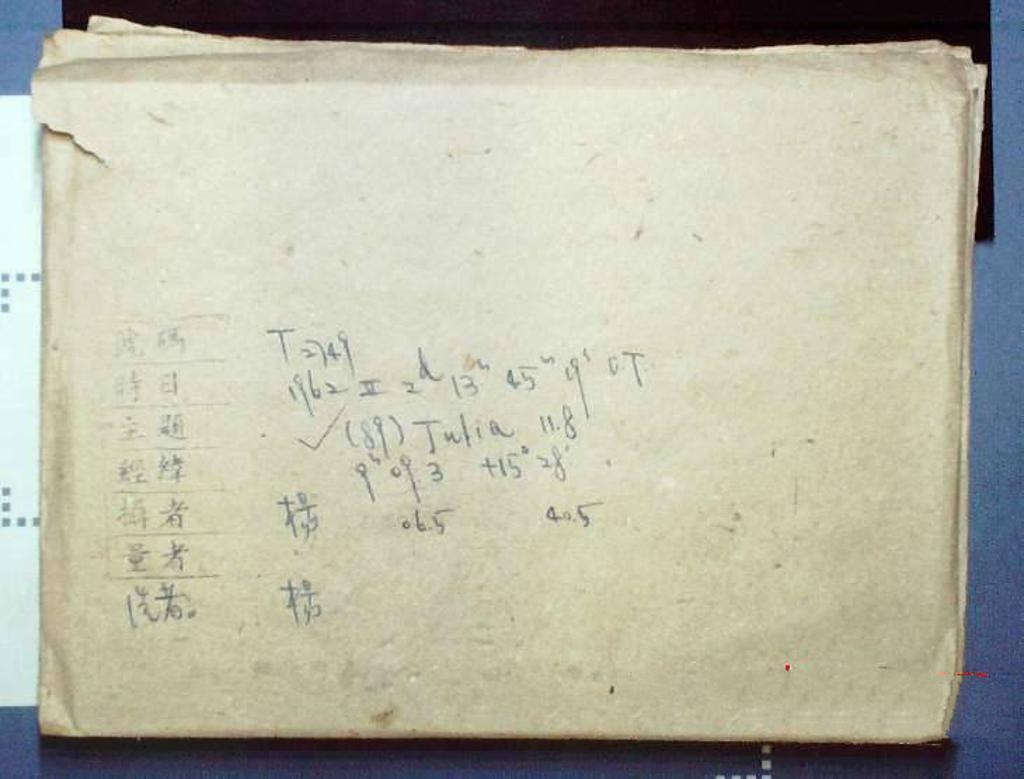 號碼 T 2749
時日 1962 II 2d 13h 45m 19s U.T.
主題 ✓ (89) Julia 11.8
經緯 9h 09.3 +15° 28'
攝者 楊 06.5 40.5
量者
洗者。 楊